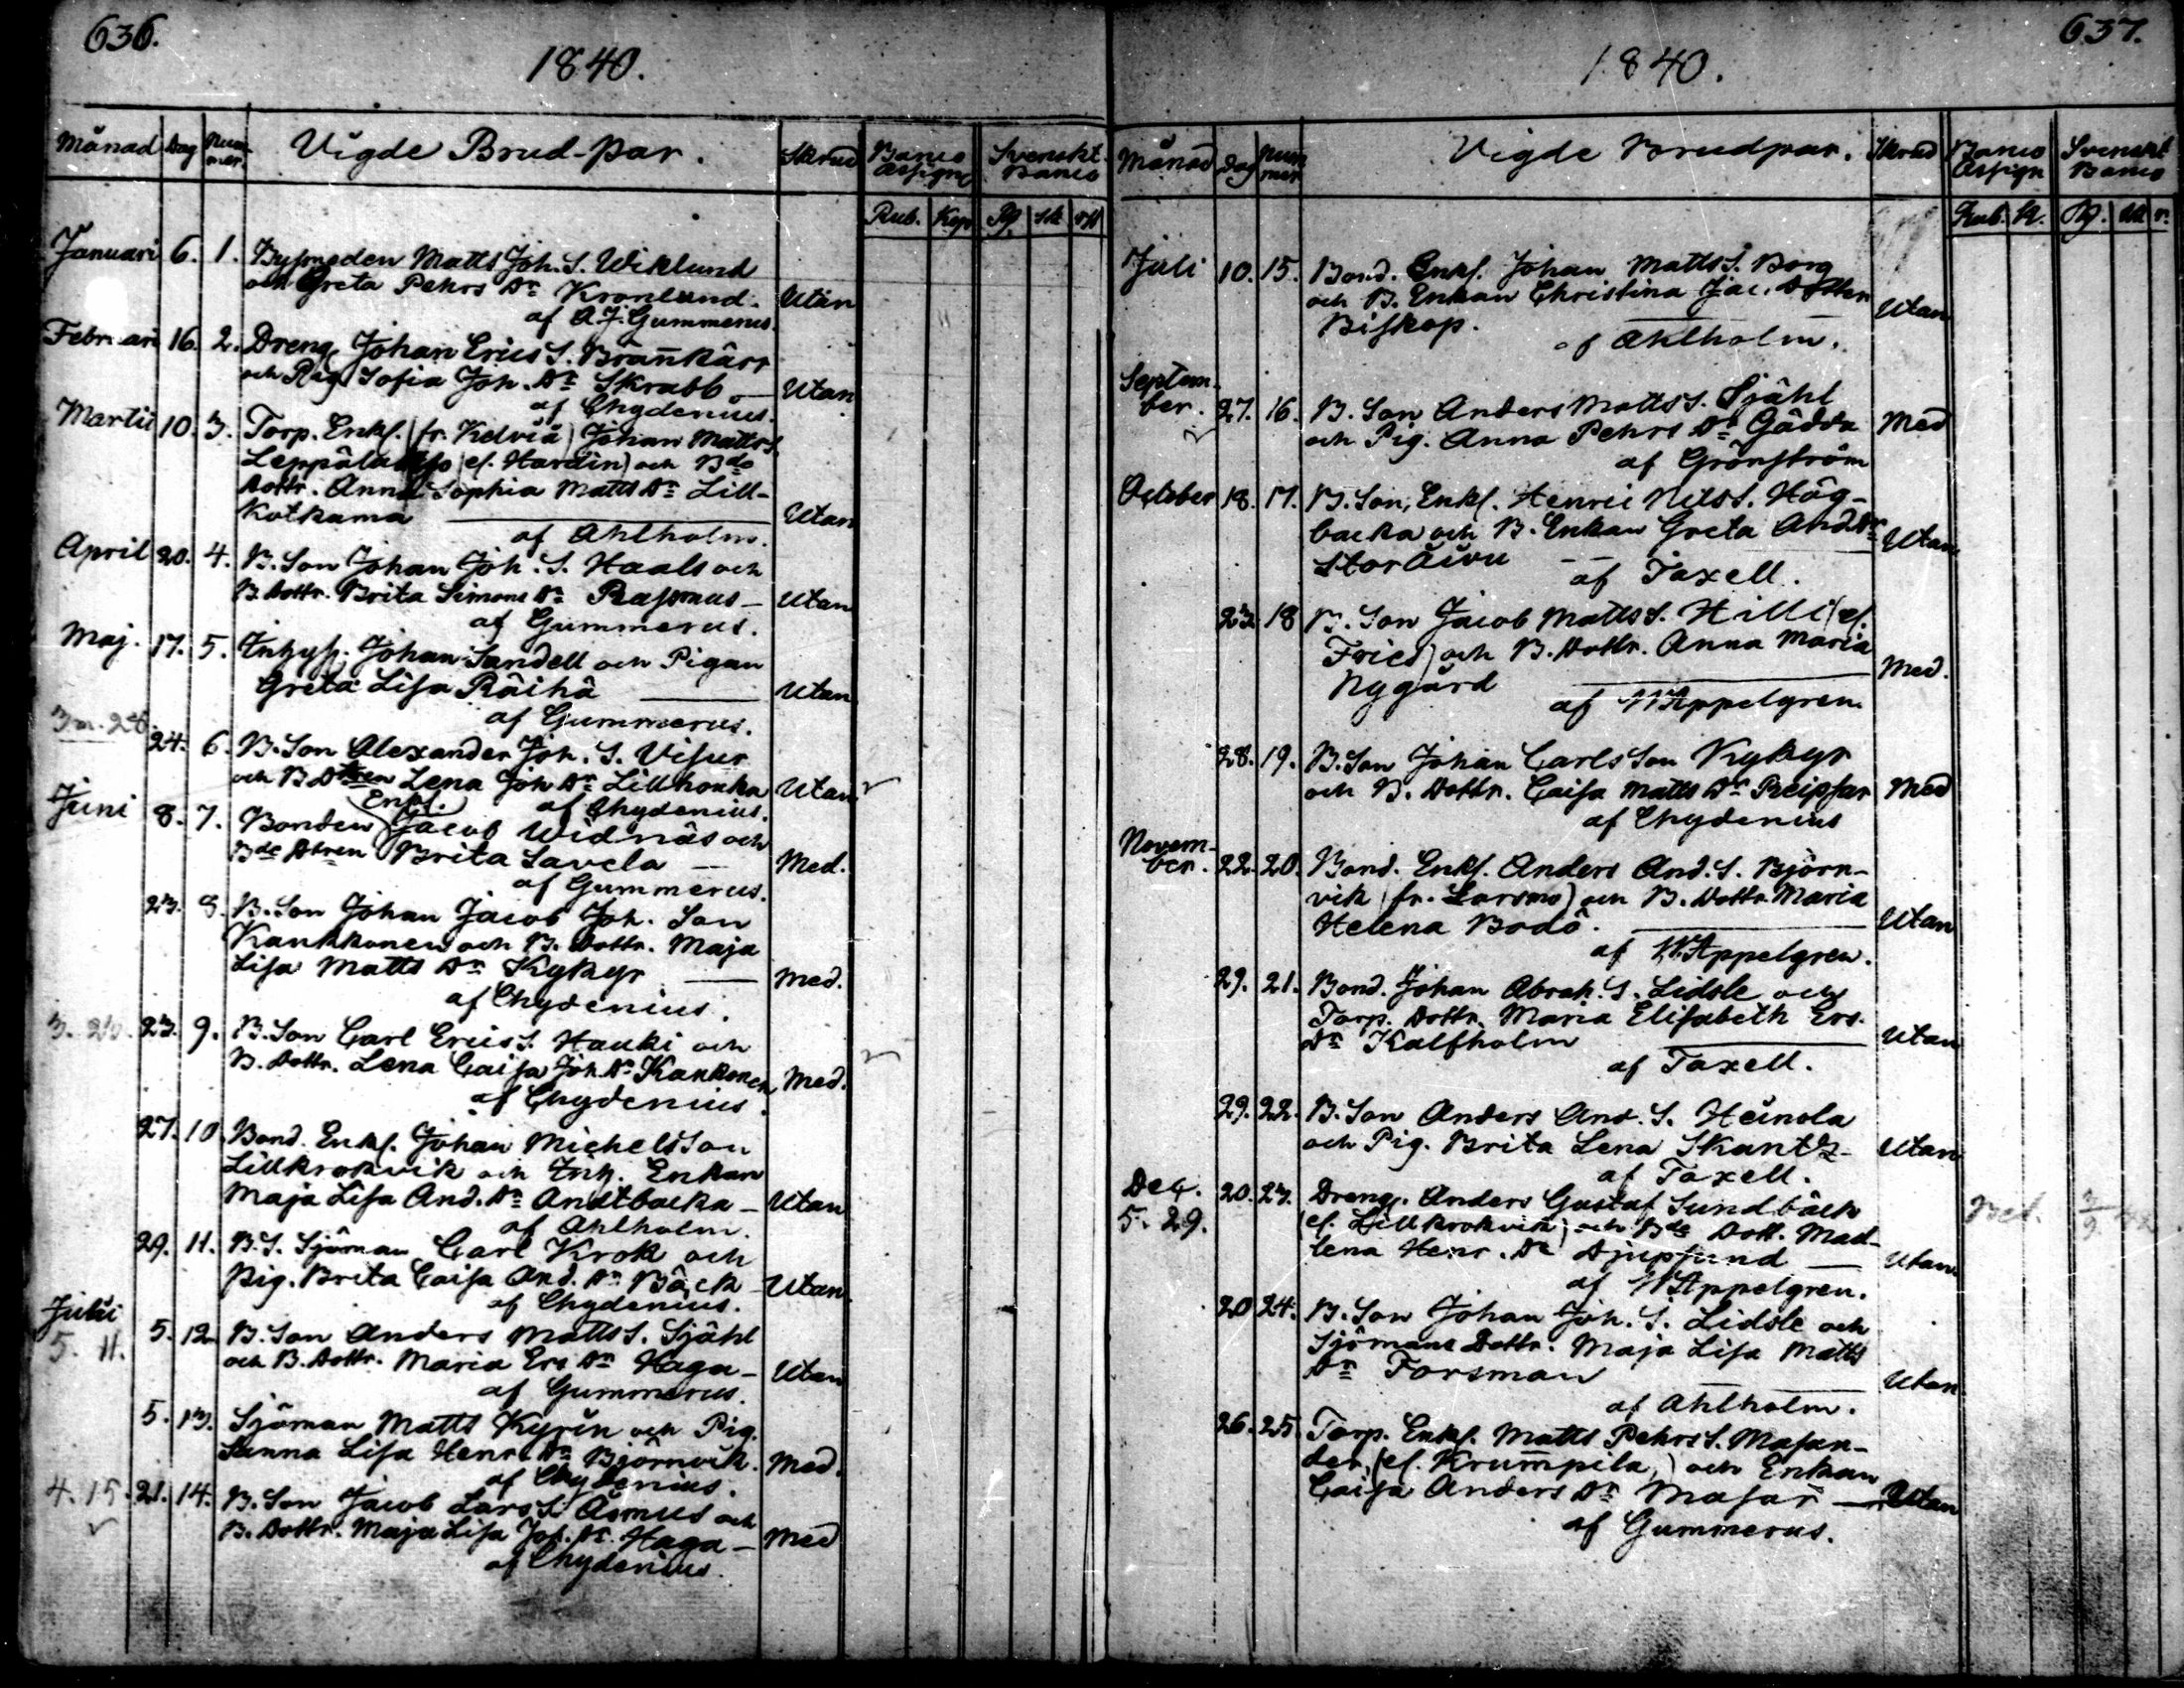 636.
1840.
Månad Dag Nummer. Vigde Brud-par. Skrud Banco Assign Svenskt Banco
Rub. Kop. Rd. sk. rst
Januari 6. 1. Bysmeden Matts Joh. S. Wiklund
och Greta Pehrs Dr Kronlund. Utan
af A. J. Gummerus.
Februari 16. 2. Dreng. Johan Erics S. Brannkärr
och Pig. Sofia Joh. Dr Skrabb – Utan
af Chydenius.
Martii 10. 3. Torp. Enkl. (fr. Kelviå) Johan Matts S.
(el. Hardin) och Bde
Dottr. Anna Sophia Matts Dr Lill-
Kotkama — Utan
af Ahlholm.
April 20. 4. B. Son Johan Joh. S. Haals och
B. Dottr. Brita Simons Dr Rasmus – Utan
af Gummerus.
Maj. 17. 5. Inhys. Johan Sandell och Pigan
Greta Lisa Räihä — Utan
af Gummerus.
24. 6. B. Son Alexander Joh. S. Visur
och B Dttren Lena Joh Dr Lillhonka Utan
af Chydenius.
Juni 8. 7. Bonden (Enkl.) Jacob Widnäs och
Bde Dtren Brita Savela — Med.
af Gummerus.
23. 8. B. Son Johan Jacob Joh. Son
Kankkonen och B. Dottr. Maja
Lisa Matts Dr Kykyr — Med.
af Chydenius.
23. 9. B. Son Carl Erics S. Hauki och
B. Dottr. Lena Caisa Joh. Dr Kankonen Med.
af Chydenius.
27. 10 Bond. Enkl. Johan Michelsson
Lillkrokvik och Inh. Enkan
Maja Lisa And. Dr Andtbacka – Utan
af Ahlholm.
29. 11. B. S. Sjöman Carl Krok och
Pig. Brita Caisa And. Dr Bäck – Utan
af Chydenius.
Julii
5. 11. 5. 12. B. Son Anders Matts S. Sjähl
och B. Dottr. Maria Ers Dr Haga – Utan
af Gummerus.
5. 13. Sjöman Matts Kyrin och Pig.
Sanna Lisa Henr. Dr Björnvik. Med.
af Chydenius.
4. 15. 21. 14. B. Son Jacob Lars S. Åsmus och
B. Dottr. Maja Lisa Joh. Dr Haga – Med
af Chydenius.
637.
1840.
Månad Dag Nummer Vigde Brudpar. Skrud Banco Assign Svenskt Banco
Rub. k. Rd. sk. r.
Juli 10. 15. Bond. Enkl. Johan Matts S. Borg
och B. Enkan Christina Jac. Dotter
Biskop. — Utan
af Ahlholm.
September. 27. 16. B. Son Anders Matts S. Sjähl
och Pig. Anna Pehrs Dr Gädda Med
af Grönström
October 18. 17. B. Son, Enkl. Henric Nils S. Hög-
backa och B. Enkan Greta And. Dr Utan
Storåivu –
af Taxell.
23. 18 B. Son Jacob Matts S. Hilli (el.
Frics) och B. Dottr. Anna Maria
Nygård — Med.
af W Appelgren.
28. 19. B. Son Johan Carlsson Kykyr
och B. Dottr. Caisa Matts Dr Reipsar Med
af Chydenius
November. 22. 20. Bond. Enkl. Anders And. S. Björn-
vik (fr. Larsmo) och B. Dottr. Maria
Helena Bodö. — Utan
af W. Appelgren.
29. 21. Bond. Johan Abrah. S. Lidsle och
Torp. Dottr. Maria Elisabeth Ers.
Dr Kalfholm — Utan
af Taxell.
29. 22. B. Son Anders And. S. Heinola
och Pig. Brita Lena Skantz – Utan
af Taxell.
Dec. 20. 23. Dreng. Anders Gustaf Sundbäck
5. 29. (el. Lillkrokvik) och Bde Dott. Mad-
lena Henr. Dr Djupsund — Utan
af W Appelgren.
20 24. B. Son Johan Joh. S. Lidsle och
Sjömans Dottr. Maja Lisa Matts
Dr Forsman — Utan
af Ahlholm.
26. 25. Torp. Enkl. Matts Pehrs S. Masan-
der, (el. Krumpila,) och Enkan
Caisa Anders Dr Masar — Utan
af Gummerus.